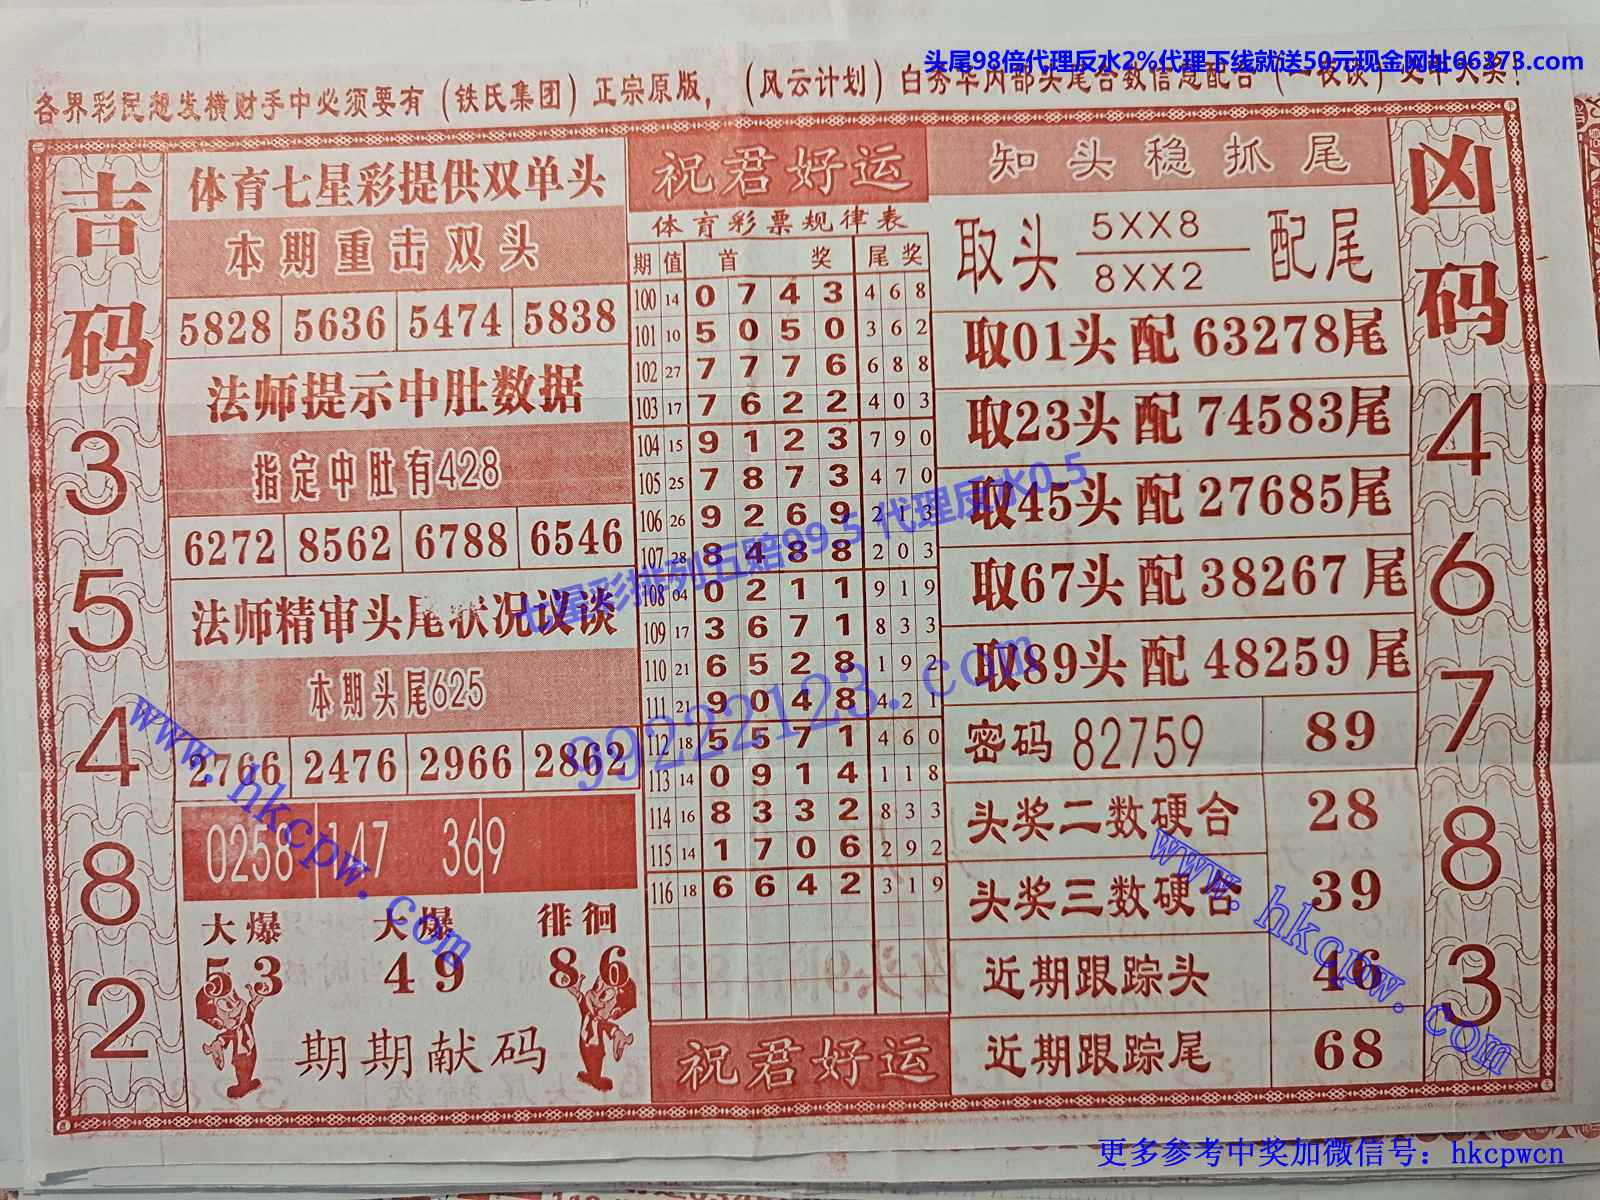 头尾98倍代理反水2%代理下线就送50元现金网址66373.com
各界彩民想发横财手中必须要有（铁氏集团）正宗原版，（风云计划）白秀华内部头尾合数信息配合（一夜谈）更中大奖！
吉码
3
5
4
8
2
体育七星彩提供双单头
本期重击双头
5828 5636 5474 5838
法师提示中肚数据
指定中肚有428
6272 8562 6788 6546
法师精审头尾状况议谈
本期头尾625
2766 2476 2966 2862
0258 147 369
大爆 大爆 徘徊
53 49 86
期期献码
祝君好运
体育彩票规律表
期 值 首 奖 尾 奖
100 14 0 7 4 3 4 6 8
101 10 5 0 5 0 3 6 2
102 27 7 7 7 6 6 8 8
103 17 7 6 2 2 4 0 3
104 15 9 1 2 3 7 9 0
105 25 7 8 7 3 4 7 0
106 26 9 2 6 9 2 1 3
107 28 8 4 8 8 2 0 3
108 04 0 2 1 1 9 1 9
109 17 3 6 7 1 8 3 3
110 21 6 5 2 8 1 9 2
111 21 9 0 4 8 4 2 1
112 18 5 5 7 1 4 6 0
113 14 0 9 1 4 1 1 8
114 16 8 3 3 2 8 3 3
115 14 1 7 0 6 2 9 2
116 18 6 6 4 2 3 1 9
祝君好运
知头稳抓尾
取头 5XX8 配尾
8XX2
取01头 配 63278尾
取23头 配 74583尾
取45头 配 27685尾
取67头 配 38267尾
取89头 配 48259尾
密码 82759 89
头奖二数硬合 28
头奖三数硬合 39
近期跟踪头 46
近期跟踪尾 68
凶码
4
6
7
8
3
七星彩排列五赔99.5 代理反水0.5
99222123.com
www.hkcpw.com
www.hkcpw.com
更多参考中奖加微信号：hkcpwcn